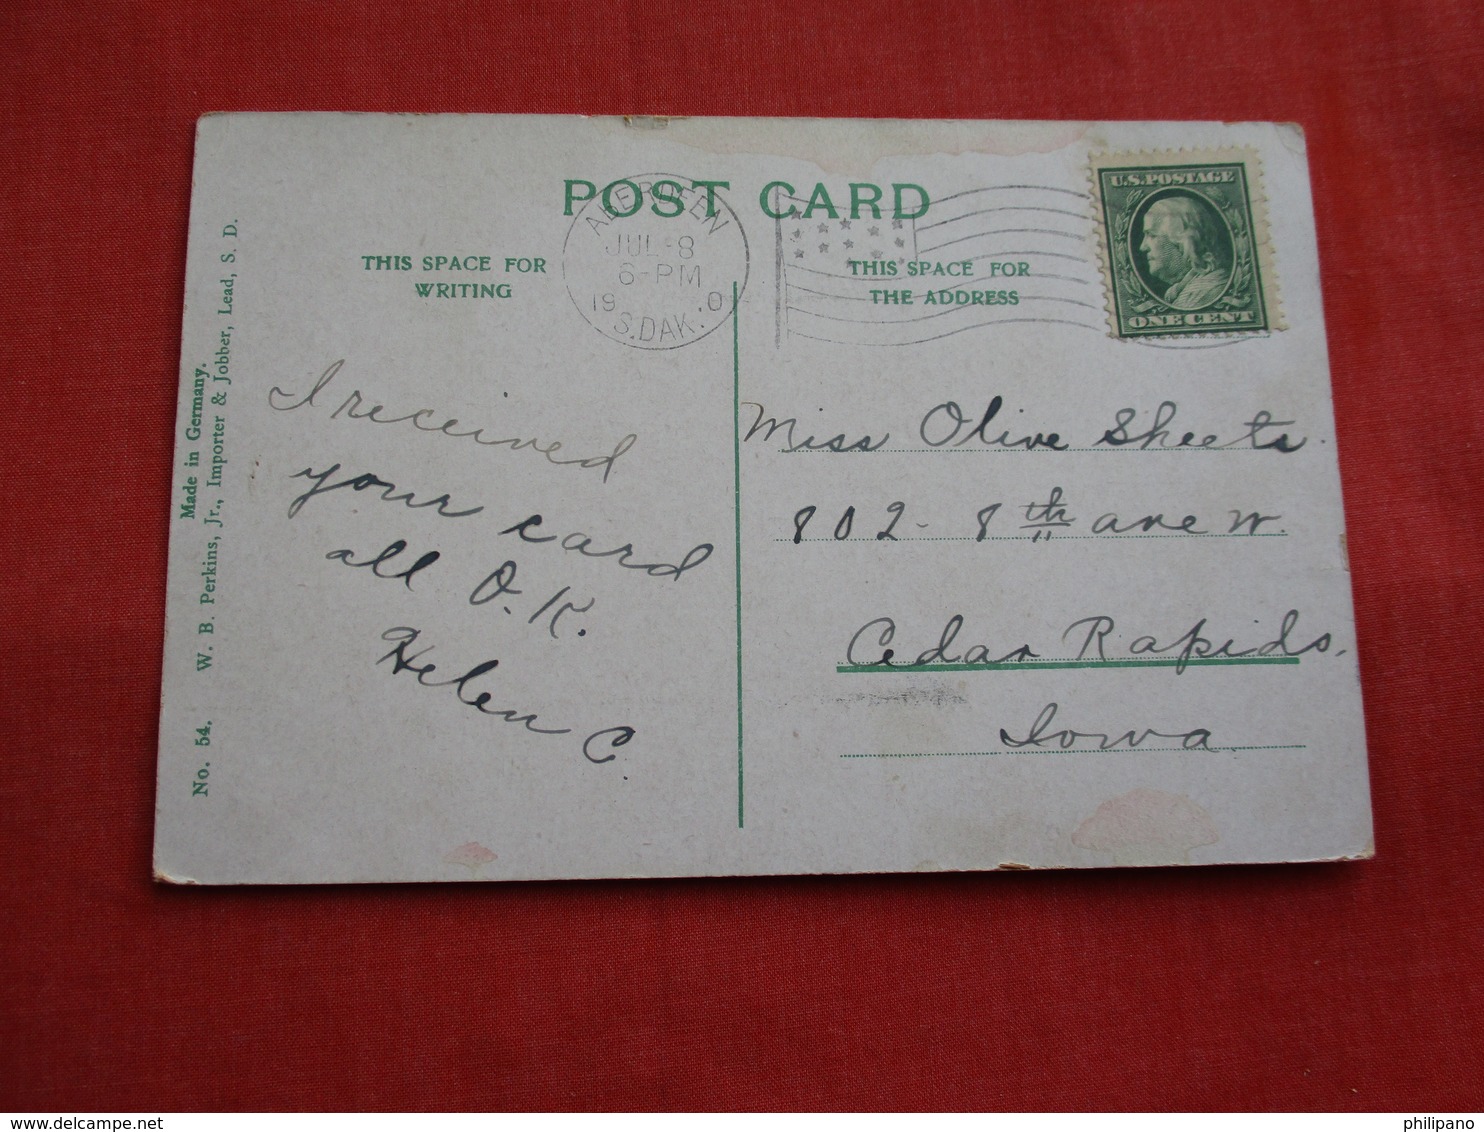 POST CARD
ABERDEEN
JUL-8
6-PM
19 '0
S.DAK.
U.S.POSTAGE
ONE CENT
THIS SPACE FOR
WRITING
THIS SPACE FOR
THE ADDRESS
Made in Germany.
No. 54. W. B. Perkins, Jr., Importer & Jobber, Lead, S. D.
I received
your card
all O.K.
Helen C.
Miss Olive Sheets.
802- 8th ave W.
Cedar Rapids.
Iowa.
www.delcampe.net
philipano